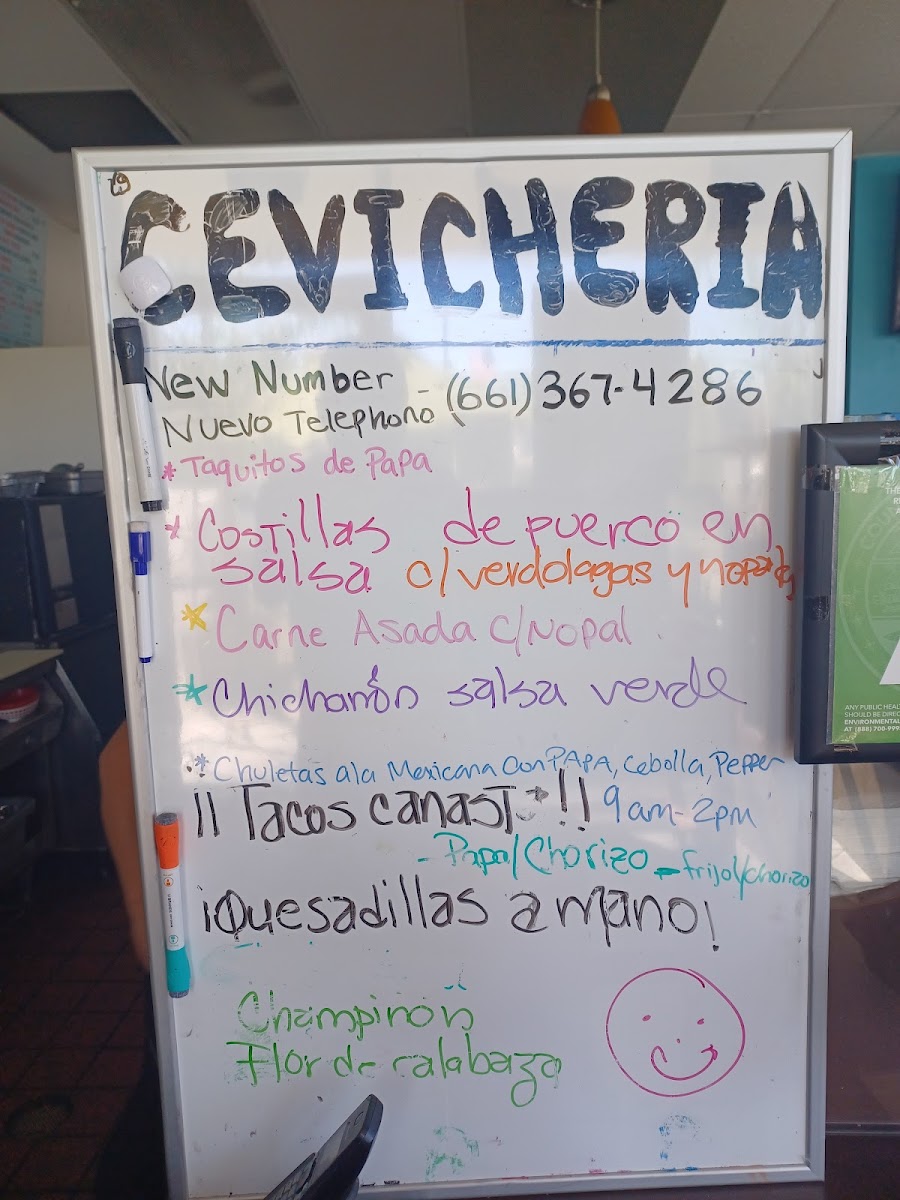 CEVICHERIA
New Number - (661) 367-4286
Nuevo Telephono
*Taquitos de Papa
* Costillas de puerco en
salsa c/verdolagas y nopales
* Carne Asada C/Nopal
* Chicharrón salsa verde
* Chuletas ala Mexicana Con PAPA, Cebolla, Pepper
¡¡Tacos canasta!! 9am-2pm
- Papa/Chorizo - frijol/chorizo
¡Quesadillas a mano!
Champiñón
Flor de calabaza
ANY PUBLIC HEA
SHOULD BE DIREC
ENVIRONMENTAL
AT (888) 700-999